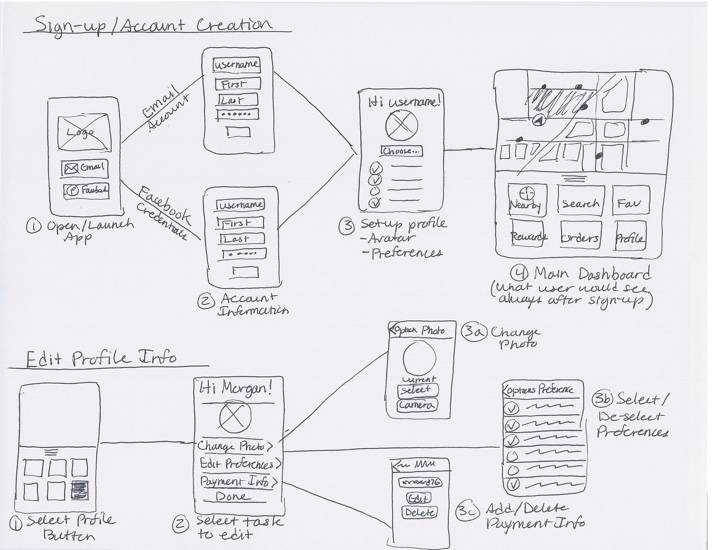 Sign-up/Account Creation
Logo
Email
Email
Account
Facebook
Credentials
username
First
Last
username
First
Last
① Open/Launch
App
② Account
Information
Hi username!
Choose...
③ Setup profile
-Avatar
-Preferences
Nearby
Search
Fav
Rewards
Orders
Profile
④ Main Dashboard
(what user would see
always after sign-up)
Edit Profile Info
① Select Profile
Button
Hi Morgan!
Change Photo>
Edit Preferences>
Payment Info>
Done
② Select task
to edit
<Option Photo
current
Select
Camera
3a Change
Photo
<Options Preference
3b Select/
De-select
Preferences
Edit
Delete
3c Add/Delete
Payment Info